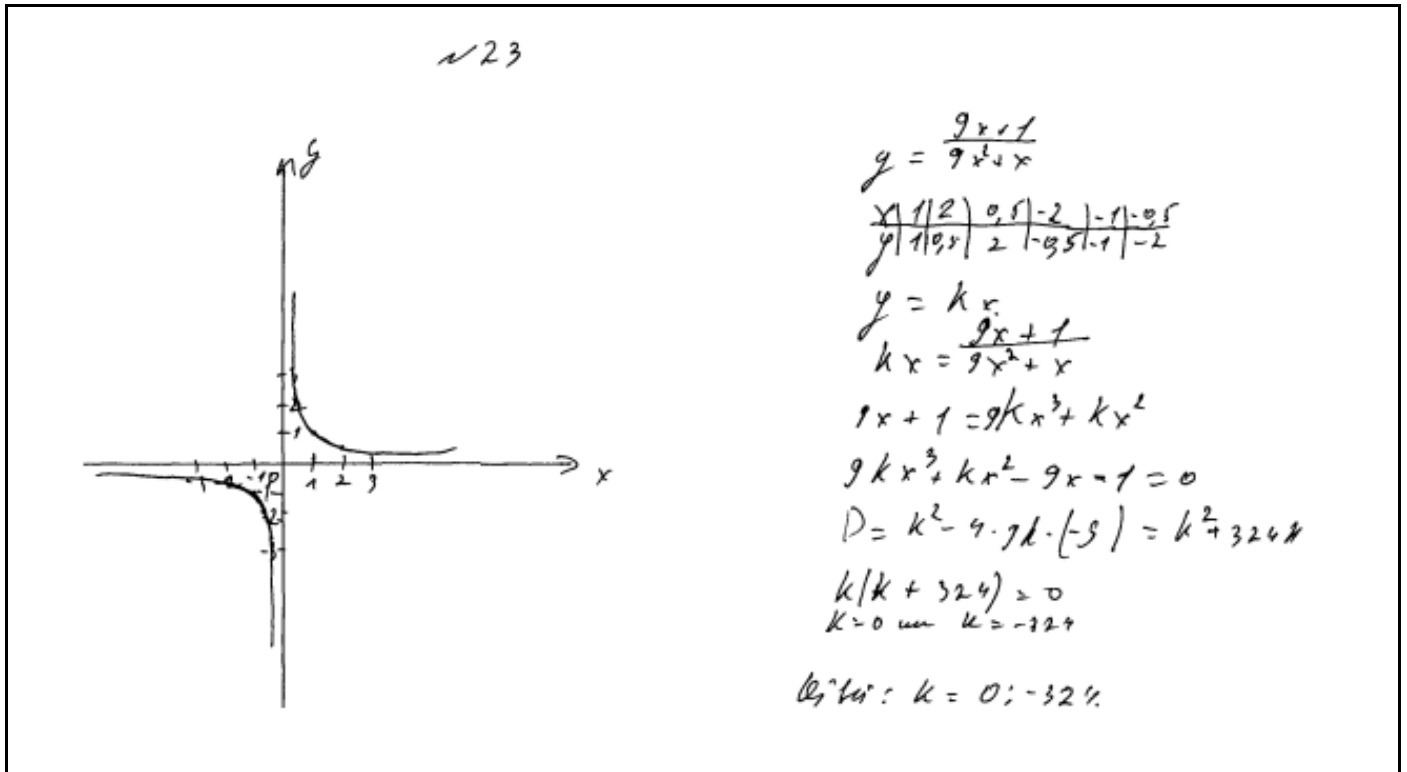 №23
y
x
1 2 3
1
2
-1
-2
-3
y = (9x+1)/(9x²+x)
x | 1 | 2 | 0,5 | -2 | -1 | -0,5
y | 1 | 0,5 | 2 | -0,5 | -1 | -2
y = kx
kx = (9x+1)/(9x²+x)
9x + 1 = 9kx³ + kx²
9kx³ + kx² - 9x - 1 = 0
D = k² - 4·9k·(-9) = k² + 324k
k(k + 324) = 0
k=0 или k = -324
k = 0; -324.